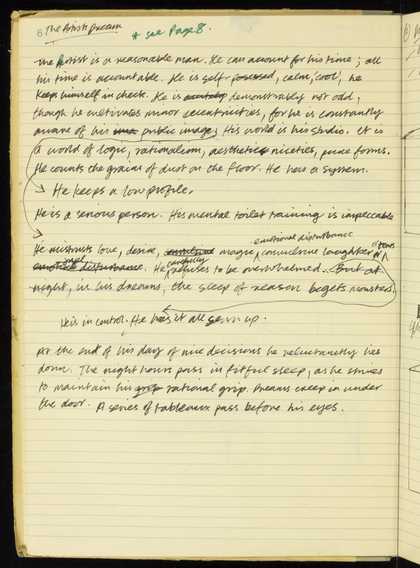 6 The Artist's Dream
* see Page 8.
The Artist is a reasonable man. He can account for his time; all
his time is accountable. He is self-possessed, calm, 'cool', he
keeps himself in check. He is demonstrably not odd,
though he cultivates minor eccentricities, for he is constantly
aware of his public image. His world is his studio. It is
a world of logic, rationalism, aesthetic niceties, pure forms.
He counts the grains of dust on the floor. He has a system.
He keeps a low profile.
He is a serious person. His mental toilet training is impeccable
emotional disturbance
He mistrusts love, desire, magic, convulsive laughter or tears
emotional disturbance. He carefully refuses to be overwhelmed. But at
night, in his dreams, the sleep of reason begets monsters.
He is in control. He has it all sewn up.
At the end of his day of nice decisions he reluctantly lies
down. The night hours pass in fitful sleep, as he strives
to maintain his rational grip. Dreams creep in under
the door. A series of tableaux pass before his eyes.